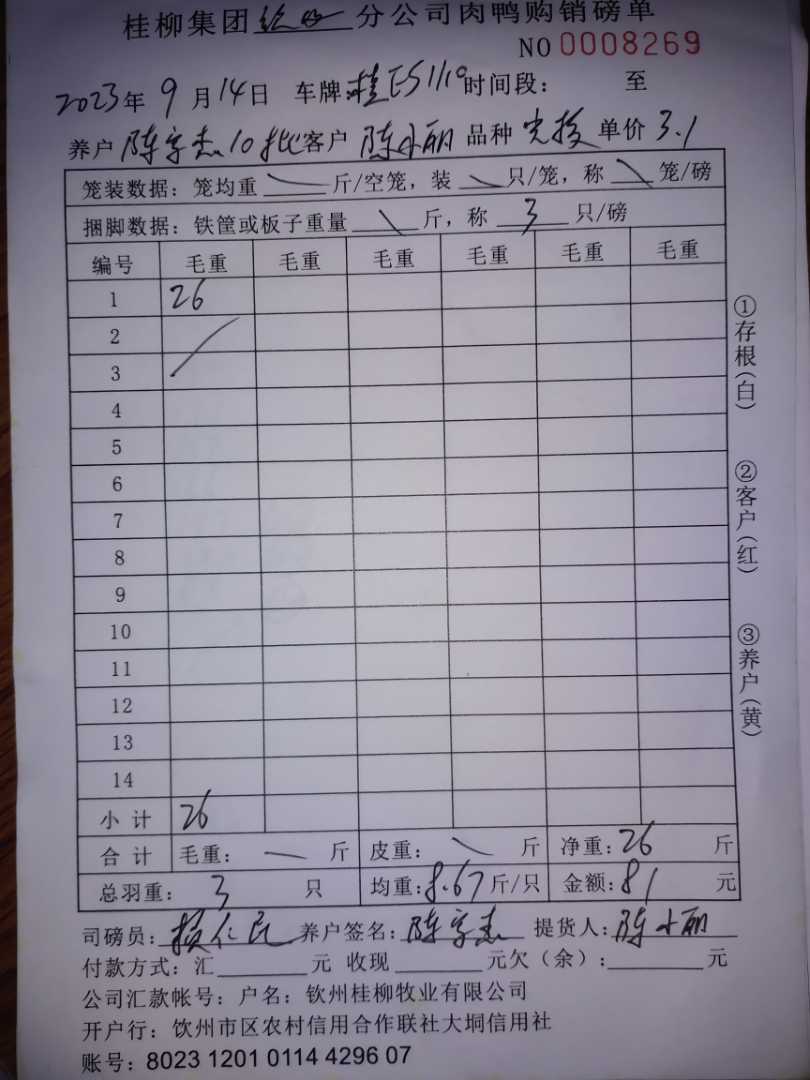 桂柳集团 分公司肉鸭购销磅单
NO 0008269
2023年 9月14日 车牌 桂E51110 时间段: 至
养户 陈宗杰10批 客户 陈小丽 品种 单价 3.1
笼装数据: 笼均重 斤/空笼, 装 只/笼, 称 笼/磅
捆脚数据: 铁筐或板子重量 斤, 称 3 只/磅
编号 毛重 毛重 毛重 毛重 毛重 毛重
1 26
2
3
4
5
6
7
8
9
10
11
12
13
14
小计 26
合计 毛重: 斤 皮重: 斤 净重: 26 斤
总羽重: 3 只 均重: 8.67 斤/只 金额: 81 元
司磅员: 养户签名: 陈宗杰 提货人: 陈小丽
付款方式: 汇 元 收现 元欠(余): 元
公司汇款帐号: 户名: 钦州桂柳牧业有限公司
开户行: 钦州市区农村信用合作联社大垌信用社
账号: 8023 1201 0114 4296 07
①存根(白)
②客户(红)
③养户(黄)